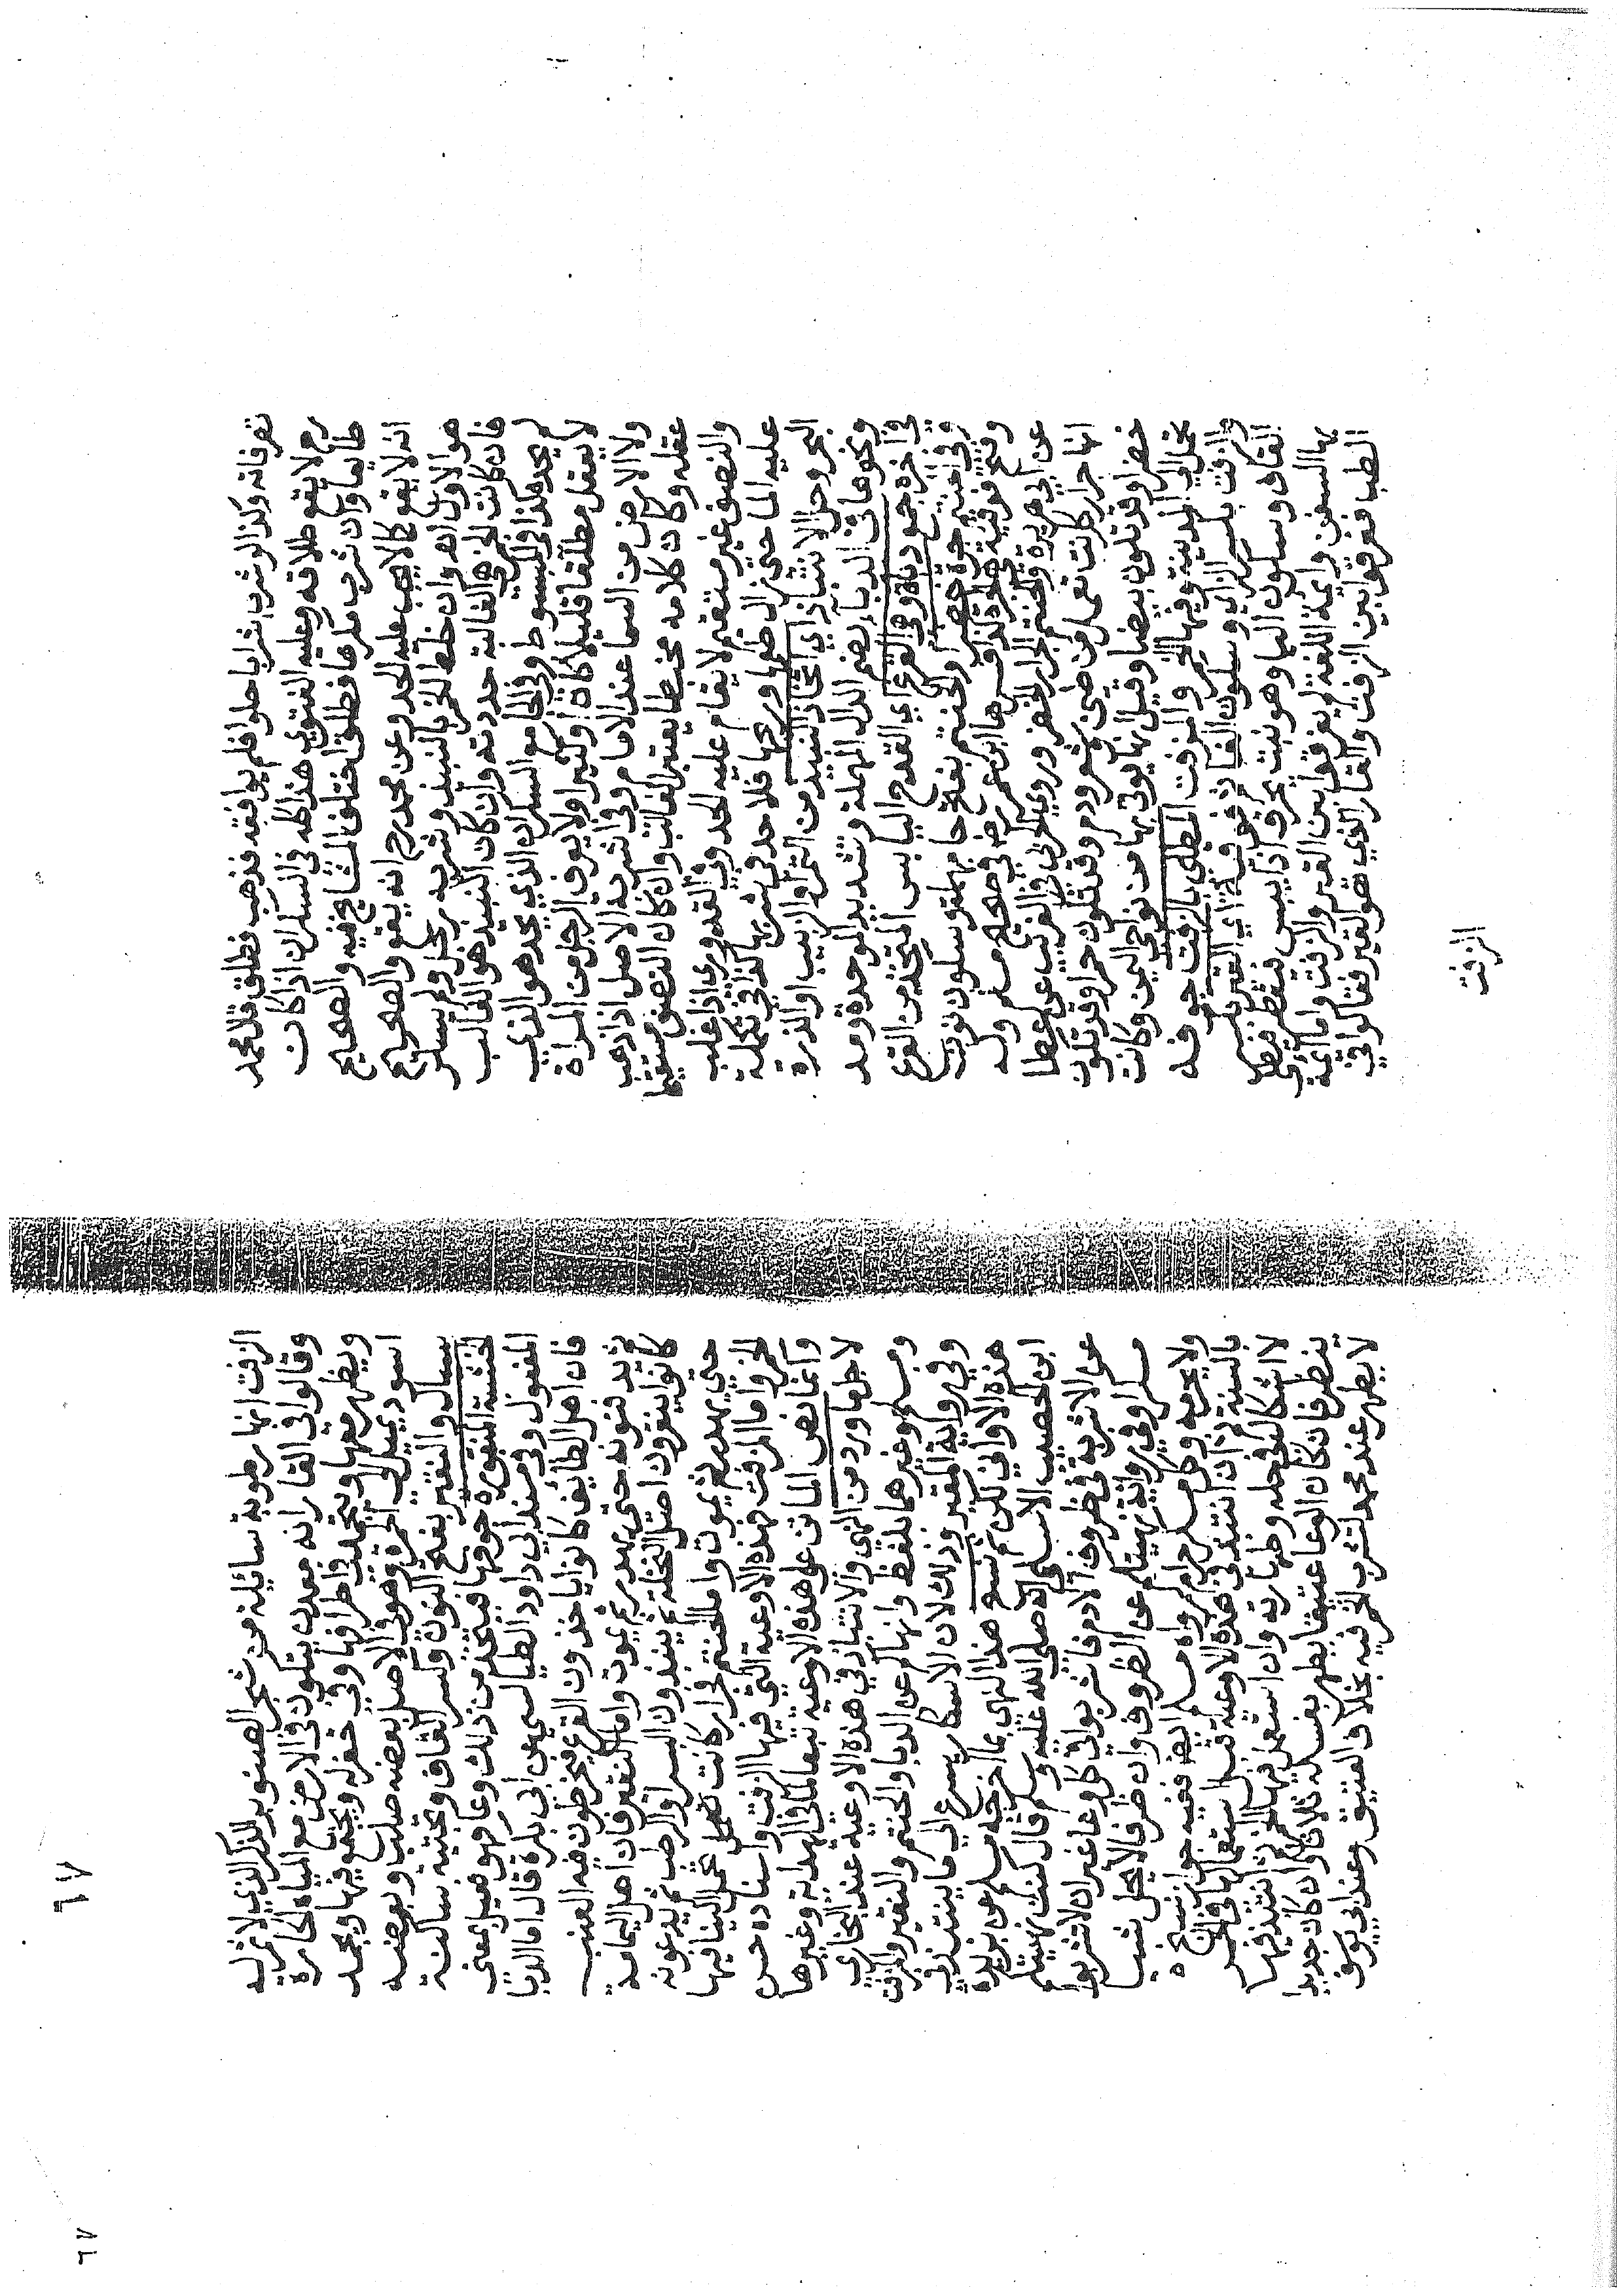 تعرفانه وكذا لو شرب شرابا حلوا فلم يوافقه فذهب فطلق قال محمد
رح لا يقع طلاقه وعليه الفتوي هذا كله في السكران اذا كان
طايعا وان شرب مكرها فطلق اختلف المشايخ فيه والصحيح
انه لا يقع كالا يجب عليه الحد وعن محمد رح انه يقع والصحيح
هو الاول انه وان خلط الخمر بالنبيذ وشربه رجل ولم يسكر
فان كانت الخمر هي الغالبة حددته وان كان النبيذ هو الغالب
لم يحده كذا في المبسوط وفي الجامع السكران الذي يحد هو الذي
لا يعقل مطلقا قليلا كان او كثيرا ولا يعرف الرجل من المراة
ولا الارض من السما عند الامام وفي اشربة الاصل اذا ذهب
عقله وكان كلامه مختلطا يعتبر الغالب وان كان النصف مستقيما
والنصف غير مستقيم لا يقام عليه الحد وفي القدوري اذا غلب
عليه الما حتي زال طعمها وريحها فلا حد في شربها كذا في تكملة
البحر وحل الانتباذ اي اتخاذ النبيذ من التمر او الزبيب او الذرة
ونحوها في الدباء بضم الدال المهملة وتشديد الموحدة ومد
في اخره جمع دباة وهو القرع اي القدح اليابس المتخذ من القرع
وفي حنتمة جرة خضرا والحنتم بفتح حا مهملة وسكون نون
وفتح فوقية هكذا فسرها ابن عمر رضي في صحيح مسلم وله
عن ابي هريرة والحنتم الجرار الخضر وروي الحربي في الغريب عن عطا
انها جرار كانت تعمل من طين وشعر ودم وقد تكون حمرا وقد تكون
خضرا وقد تكون بيضا وقيل انها يوتي بها من نواحي اليمن وكانت
تحمل الي المدينة وفيها الخمر والمزفت المطلي بالزفت جوفه
والزفت بكسر الزاي وسكون الفا ثم فوقية اي القير بكسر
القاف وسكون اليا وهو نبت يحرق اذا يبس فتقطر فيطلى
بها السفن وايمة اللغة لم يفرقوا بين القير والزفت واما ايمة
الطب ففرقوا بين الزفت والقار الذي هو القير فقالوا في
الزفت
الزفت انها رطوبة سائيلة من شجر الصنوبر الذكر الذي لا ثمر له
وقالوا في القار انه معدن يتكون في الارض مع المياه الحارة
ويظهر معها ويتحلب في اطرافها وفي حفر له ويجمع فيها ويجمد
اسود يميل الي الحمرة وهو في الاصل بعضه صلب وبعضه
سيال والنقير بفتح النون وكسر القاف وتحتية ساكنة
الخشبة المنقورة جوفها فيتخذ من ذلك وعا فهو فعيل بمعني
المفعول وفي مسند ابي داود الطيالسي عن ابي بكرة قال اما الدبا
فان اهل الطايف كانوا ياخذون القرع فيخرطون فيه العنب
ثم يدفنونه حتي يهدر ثم يموت واما النقير فان اهل اليمامة
كانوا ينقرون اصل النخلة ثم ينبذون البسر والرطب ثم يدعونه
حتي يهدر ثم يموت واما الحنتم فجرار كانت تحمل الينا فيها
الخمر واما المزفت فهذه الاوعية التي فيها الزفت واسناده حسن
وانما نص الماتن علي هذه الاوعية تبعا لما في الهداية وغيرها
لاجل ما ورد من النهي والانتباذ في هذه الاوعية عند البخاري
ومسلم وغيرهما بلفظ وانهاكم عن الدبا والحنتم والنقير والمزفت
وفي رواية المقير وذلك لان الاسكار يسرع الي ما ينتبذ في
هذه الاواني لكن نسخ هذا النهي بما اخرجه مسلم عن بريدة
ابن الحصيب الاسلمي انه صلي الله عليه وسلم قال كنت نهيتكم
عن الاشربة الا في ظروف الادم فاشربوا في كل وعا غير ان لا تشربوا
مسكرا وفي رواية نهيتكم عن الظروف وان ظرفا لا يحل شيا
ولا يحرمه وكل مسكر حرام رواه مسلم ايضا ففيه جواز نسخ
بالسنة ثم ان انتبذ في هذه الاوعية قبل استعمالها في الخمر
لا اشكال في حله وطهارته وان استعمل فيها الخمر ثم انتبذ فيها
ينظر فان كان الوعا عتيقا يطهر بغسله ثلاثا وان كان جديدا
لا يطهر عند محمد لتشرب الخمر فيه بخلاف العتيق وعند ابي يوسف
٦٧
٦٧